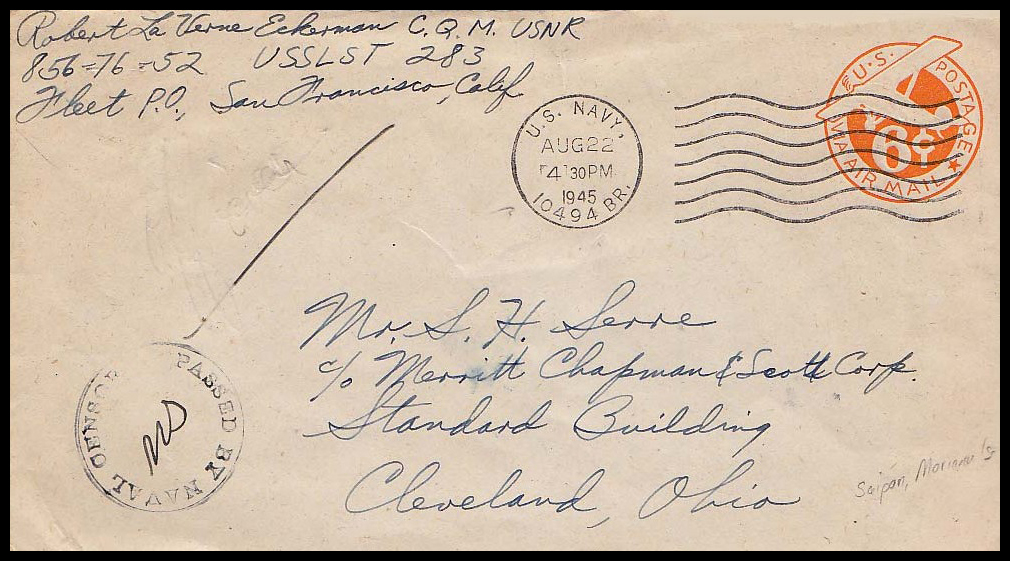 Robert La Verne Eckerman C.Q.M. USNR
856-76-52 USSLST 283
Fleet P.O., San Francisco, Calif
U.S. NAVY.
AUG 22
4 30 PM
1945
10494 BR.
U.S. POSTAGE
6¢
VIA AIR MAIL
Mr. S. H. Serre
c/o Merritt Chapman & Scott Corp.
Standard Building
Cleveland, Ohio
PASSED BY NAVAL CENSOR
Saipan, Mariana Is